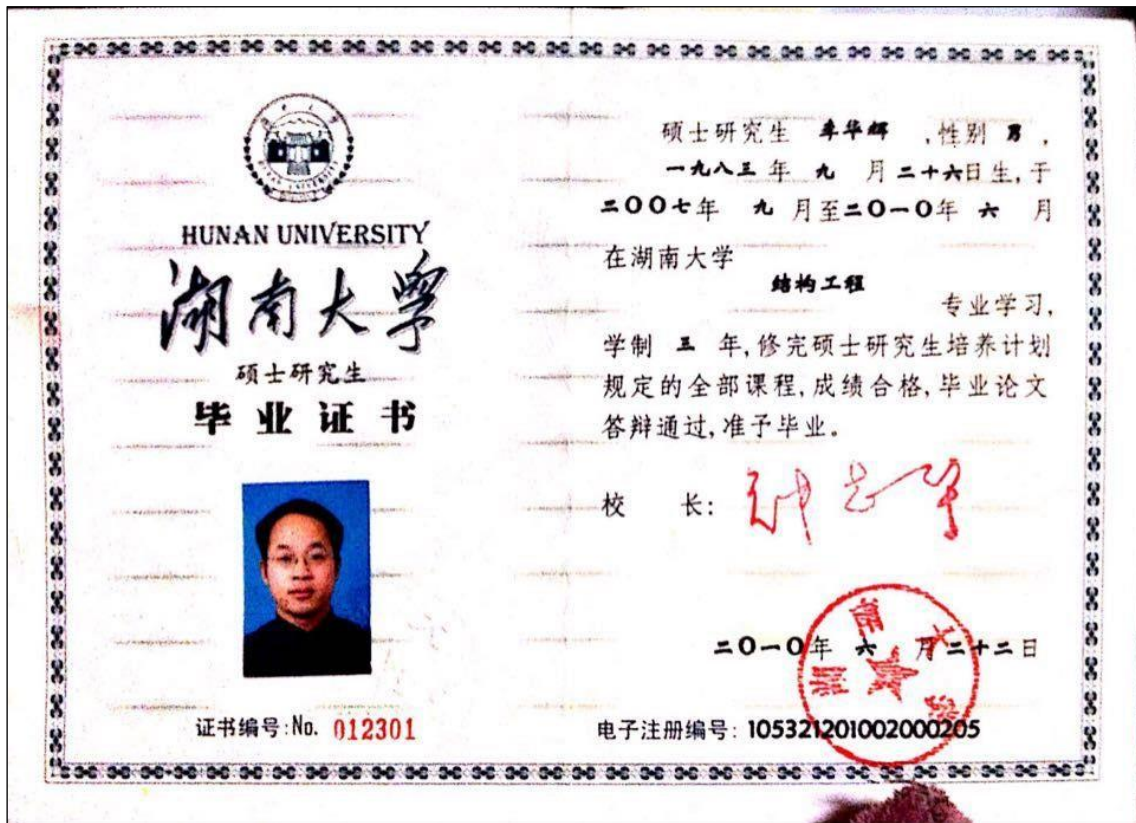 HUNAN UNIVERSITY
湖南大学
硕士研究生
毕业证书
证书编号:No. 012301
硕士研究生 华辉 ,性别 男 ,
一九八三年 九 月二十六日生,于
二〇〇七年 九 月至二〇一〇年 六 月
在湖南大学
结构工程
专业学习,
学制 三 年,修完硕士研究生培养计划
规定的全部课程,成绩合格,毕业论文
答辩通过,准予毕业。
校 长:
二〇一〇年 六 月二十二日
湖南大学
电子注册编号: 105321201002000205